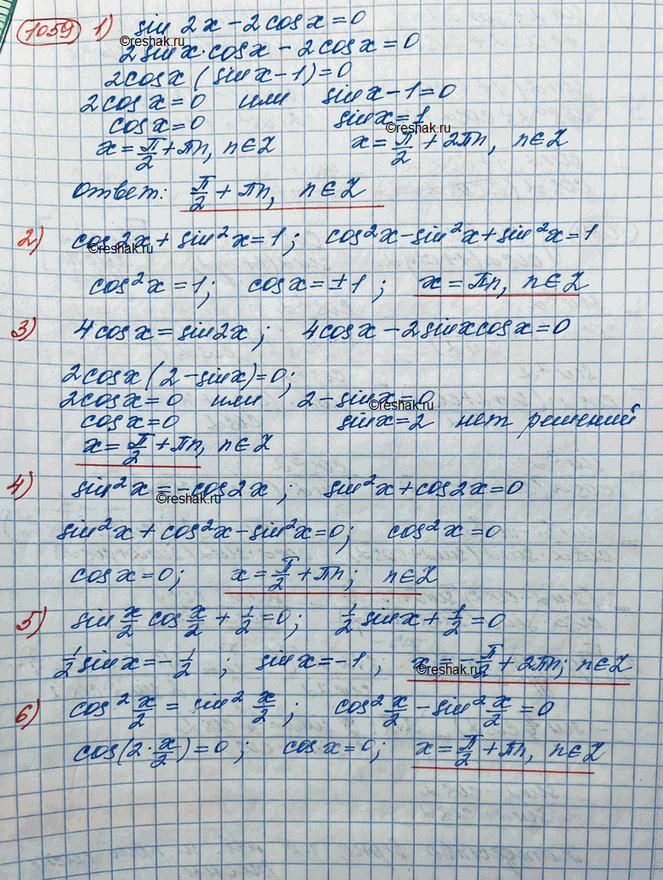 1059 1) sin 2x - 2cos x = 0
©reshak.ru
2 sin x · cos x - 2 cos x = 0
2cos x (sin x - 1) = 0
2 cos x = 0 или sin x - 1 = 0
cos x = 0 sin x = 1
©reshak.ru
x = π/2 + πn, n ∈ Z x = π/2 + 2πn, n ∈ Z
Ответ: π/2 + πn, n ∈ Z
2) cos 2x + sin²x = 1; cos²x - sin²x + sin²x = 1
©reshak.ru
cos²x = 1; cos x = ±1; x = πn, n ∈ Z
3) 4cos x = sin 2x; 4cos x - 2sin x cos x = 0
2cos x (2 - sin x) = 0;
2cos x = 0 или 2 - sin x = 0
©reshak.ru
cos x = 0 sin x = 2 нет решений
x = π/2 + πn, n ∈ Z
4) sin²x = -cos 2x; sin²x + cos 2x = 0
©reshak.ru
sin²x + cos²x - sin²x = 0; cos²x = 0
cos x = 0; x = π/2 + πn; n ∈ Z
5) sin x/2 cos x/2 + 1/2 = 0; 1/2 sin x + 1/2 = 0
1/2 sin x = -1/2; sin x = -1; x = -π/2 + 2πn; n ∈ Z
©reshak.ru
6) cos² x/2 = sin² x/2; cos² x/2 - sin² x/2 = 0
cos(2 · x/2) = 0; cos x = 0; x = π/2 + πn, n ∈ Z